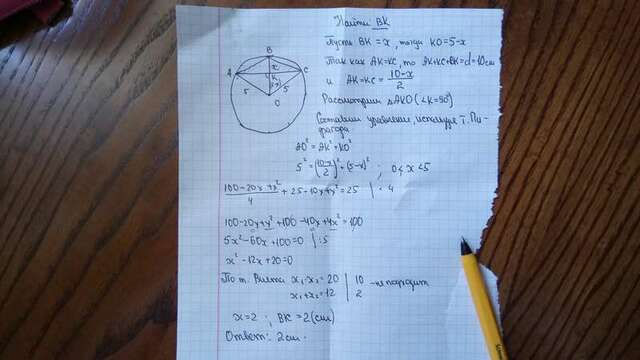 Найти BK
Пусть BK = x, тогда KO = 5-x
Так как AK=KC, то AK+KC+BK=d=10см
и AK=KC= (10-x)/2
Рассмотрим ΔAKO (∠K=90°)
Составим уравнение, используя т. Пи-
фагора
AO² = AK² + KO²
5² = ((10-x)/2)² + (5-x)² ; 0<x<5
(100-20x+x²)/4 + 25-10x+x² = 25 | · 4
100-20x+x²+100-40x+4x² = 100
5x²-60x+100=0 | :5
x²-12x+20=0
По т. Виета x₁·x₂=20 | 10 - не подходит
x₁+x₂=12 | 2
x=2 ; BK=2(см)
Ответ: 2см.
B
A
x
K
C
5
5
O